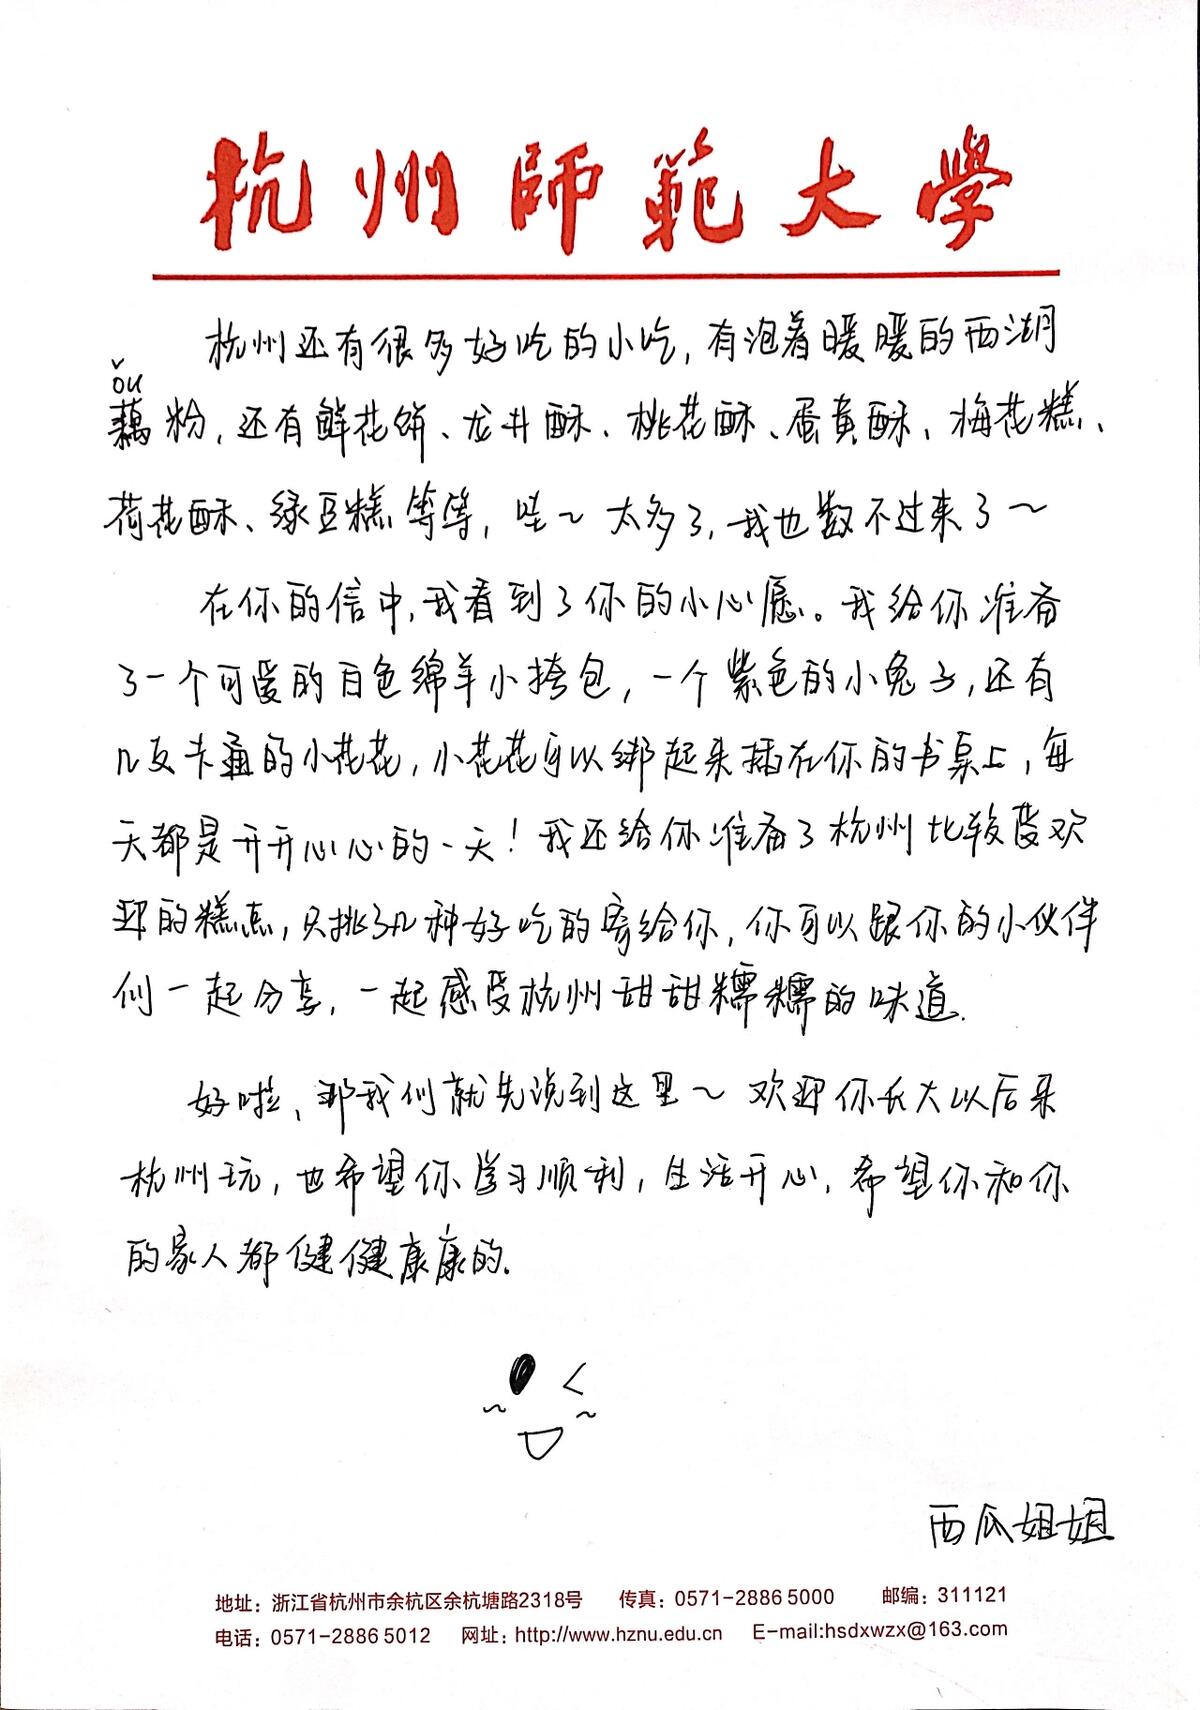 杭州师範大學
杭州还有很多好吃的小吃，有泡着暖暖的西湖
ǒu
藕粉，还有鲜花饼、龙井酥、桃花酥、蛋黄酥、梅花糕、
荷花酥、绿豆糕等等，哇～太多了，我也数不过来了～
在你的信中，我看到了你的小心愿。我给你准备
了一个可爱的白色绵羊小挎包，一个紫色的小兔子，还有
几支卡通的小花花，小花花可以绑起来插在你的书桌上，每
天都是开开心心的一天！我还给你准备了杭州比较受欢
迎的糕点，只挑了几种好吃的寄给你，你可以跟你的小伙伴
们一起分享，一起感受杭州甜甜糯糯的味道.
好啦，那我们就先说到这里～欢迎你长大以后来
杭州玩，也希望你学习顺利，生活开心，希望你和你
的家人都健健康康的.
西瓜姐姐
地址：浙江省杭州市余杭区余杭塘路2318号 传真：0571-2886 5000 邮编：311121
电话：0571-2886 5012 网址：http://www.hznu.edu.cn E-mail:hsdxwzx@163.com